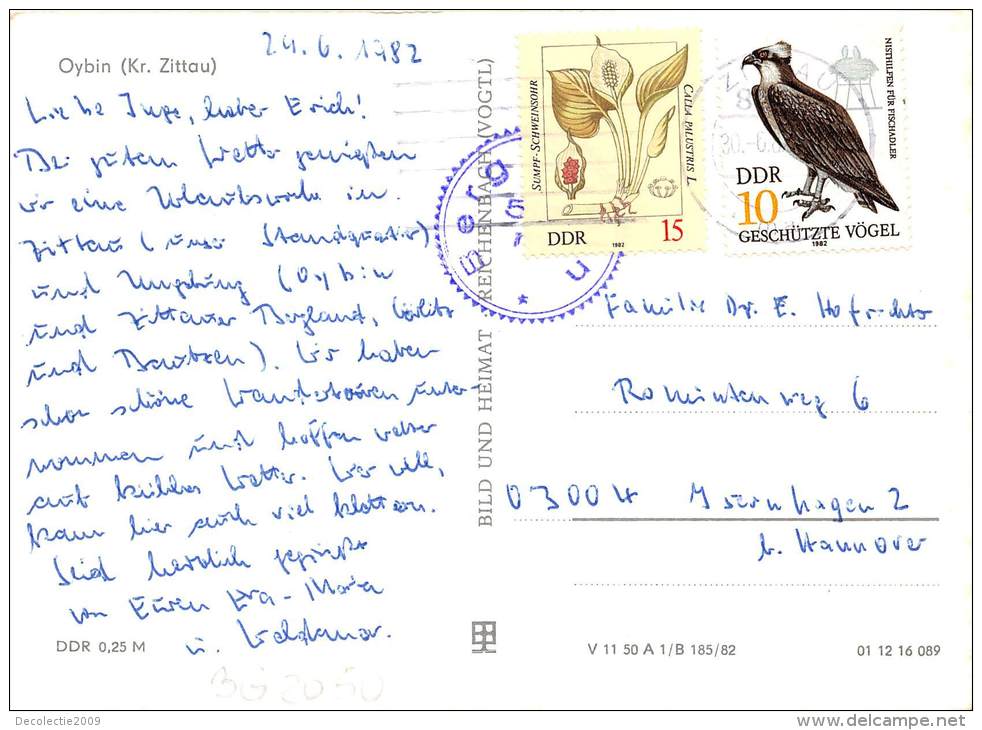 Oybin (Kr. Zittau)
29.6.1982
Liebe Inge, lieber Erich!
Bei gutem Wetter genießen
wir eine Urlaubswoche in
Zittau (unser Standquartier)
und Umgebung (Oybin
und Zittauer Bergland, Görlitz
und Bautzen). Wir haben
schon schöne Wandertouren unter-
nommen und hoffen weiter
auf kühles Wetter. Wer will,
kann hier auch viel klettern.
Seid herzlich gegrüßt
von Euren Eva-Maria
u. Waldemar.
DDR 0,25 M
BILD UND HEIMAT REICHENBACH (VOGTL)
SUMPF-SCHWEINSOHR
CALLA PALUSTRIS L.
DDR 1982 15
NISTHILFEN FÜR FISCHADLER
DDR
10
GESCHÜTZTE VÖGEL
1982
Berg
Familie Dr. E. Hofrichter
Rominten weg 6
D3004 Isernhagen 2
b. Hannover
V 11 50 A 1/B 185/82
01 12 16 089
BG 2050
Decolectie2009
www.delcampe.net